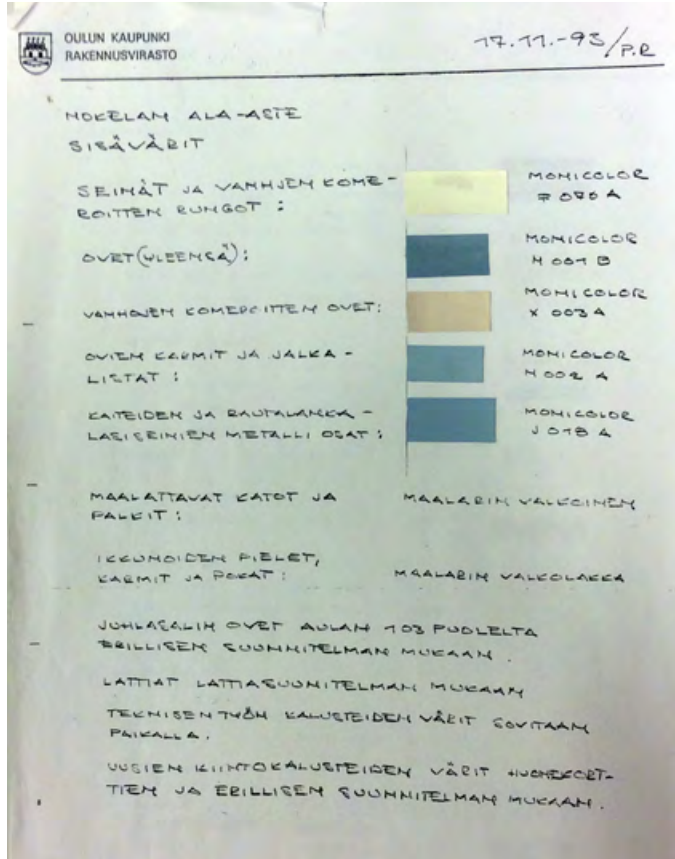 OULUN KAUPUNKI
RAKENNUSVIRASTO
17.11.-93/P.R
NOKELAN ALA-ASTE
SISÄVÄRIT
SEINÄT JA VANHOJEN KOME-
ROITTEN RUNGOT :
MONICOLOR
F 076 A
OVET (YLEENSÄ) :
MONICOLOR
N 001 B
VANHOJEN KOMEROITTEN OVET :
MONICOLOR
X 003 A
OVIEN KARMIT JA JALKA-
LISTAT :
MONICOLOR
N 002 A
KAITEIDEN JA RAUTALANKA-
LASISEINIEN METALLI OSAT :
MONICOLOR
J 018 A
MAALATTAVAT KATOT JA
PALKIT :
MAALARIN VALKOINEN
IKKUNOIDEN PIELET,
KARMIT JA POKAT :
MAALARIN VALKOLAKKA
JUHLASALIN OVET AULAN 103 PUOLELTA
ERILLISEN SUUNNITELMAN MUKAAN.
LATTIAT LATTIASUUNITELMAN MUKAAN
TEKNISEN TYÖN KALUSTEIDEN VÄRIT SOVITAAN
PAIKALLA.
UUSIEN KIINTOKALUSTEIDEN VÄRIT HUONEKORT-
TIEN JA ERILLISEN SUUNNITELMAN MUKAAN.